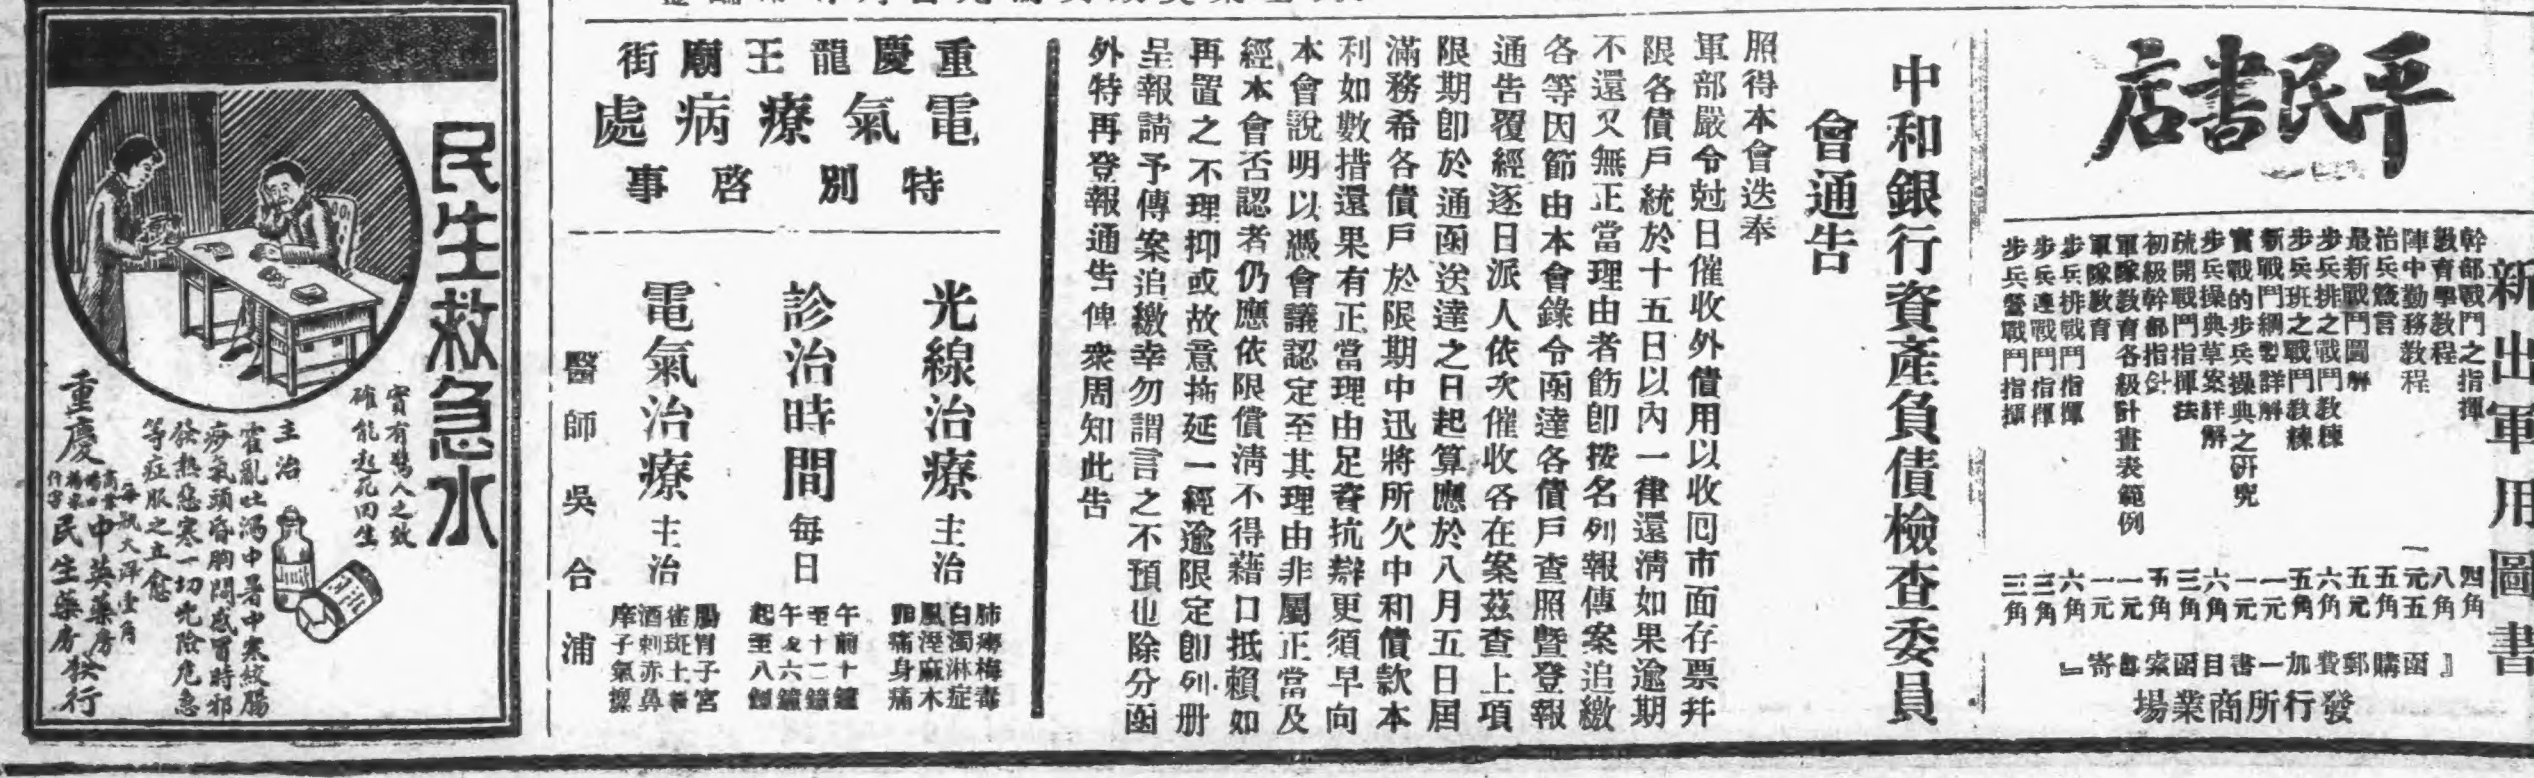 平民書店
新出軍用圖書
幹部戰鬥之指揮 四角
教育學教程 八角
陣中勤務教程 一元五
治兵箴言 五角
最新戰鬥圖解 五元
步兵排之戰鬥教練 六角
步兵班之戰鬥教練 五角
新戰鬥綱要詳解 一元
實戰的步兵操典之研究 一元
步兵操典草案詳解 六角
疏開戰鬥指揮法 三角
初級幹部指針 五角
軍隊教育各級計畫表範例 一元
軍隊教育 一元
步兵排戰鬥指揮 六角
步兵連戰鬥指揮 三角
步兵營戰鬥指揮 三角
『函購郵費加一書目函索即寄』
發行所商業場
中和銀行資產負債檢查委員
會通告
照得本會迭奉
軍部嚴令尅日催收外債用以收回市面存票幷
限各債戶統於十五日以內一律還清如果逾期
不還又無正當理由者飭即按名列報傳案追繳
各等因節由本會錄令函達各債戶查照暨登報
通告覆經逐日派人依次催收各在案茲查上項
限期即於通函送達之日起算應於八月五日屆
滿務希各債戶於限期中迅將所欠中和債款本
利如數措還果有正當理由足資抗辯更須早向
本會說明以憑會議認定至其理由非屬正當及
經本會否認者仍應依限償清不得藉口抵賴如
再置之不理抑或故意拖延一經逾限定即列册
呈報請予傳案追繳幸勿謂言之不預也除分函
外特再登報通告俾衆周知此告
重慶龍王廟街
電氣療病處
特別啓事
光線治療 主治
肺癆梅毒
白濁淋症
風溼麻木
節痛身痛
診治時間 每日
午前十鐘
至十二鐘
午後六鐘
起至八鐘
電氣治療 主治
腸胃子宮
雀斑土斑
酒刺赤鼻
痒子氣
醫師吳合浦
民生救急水
實有驚人之效
確能起死回生
主治
霍亂吐瀉中暑中寒絞腸
痧氣頭昏胸悶感冒時邪
發熱惡寒一切危險危急
等症服之立愈
每瓶大洋壹角
重慶
商業場口中英藥房
楊家什字民生藥房
發行